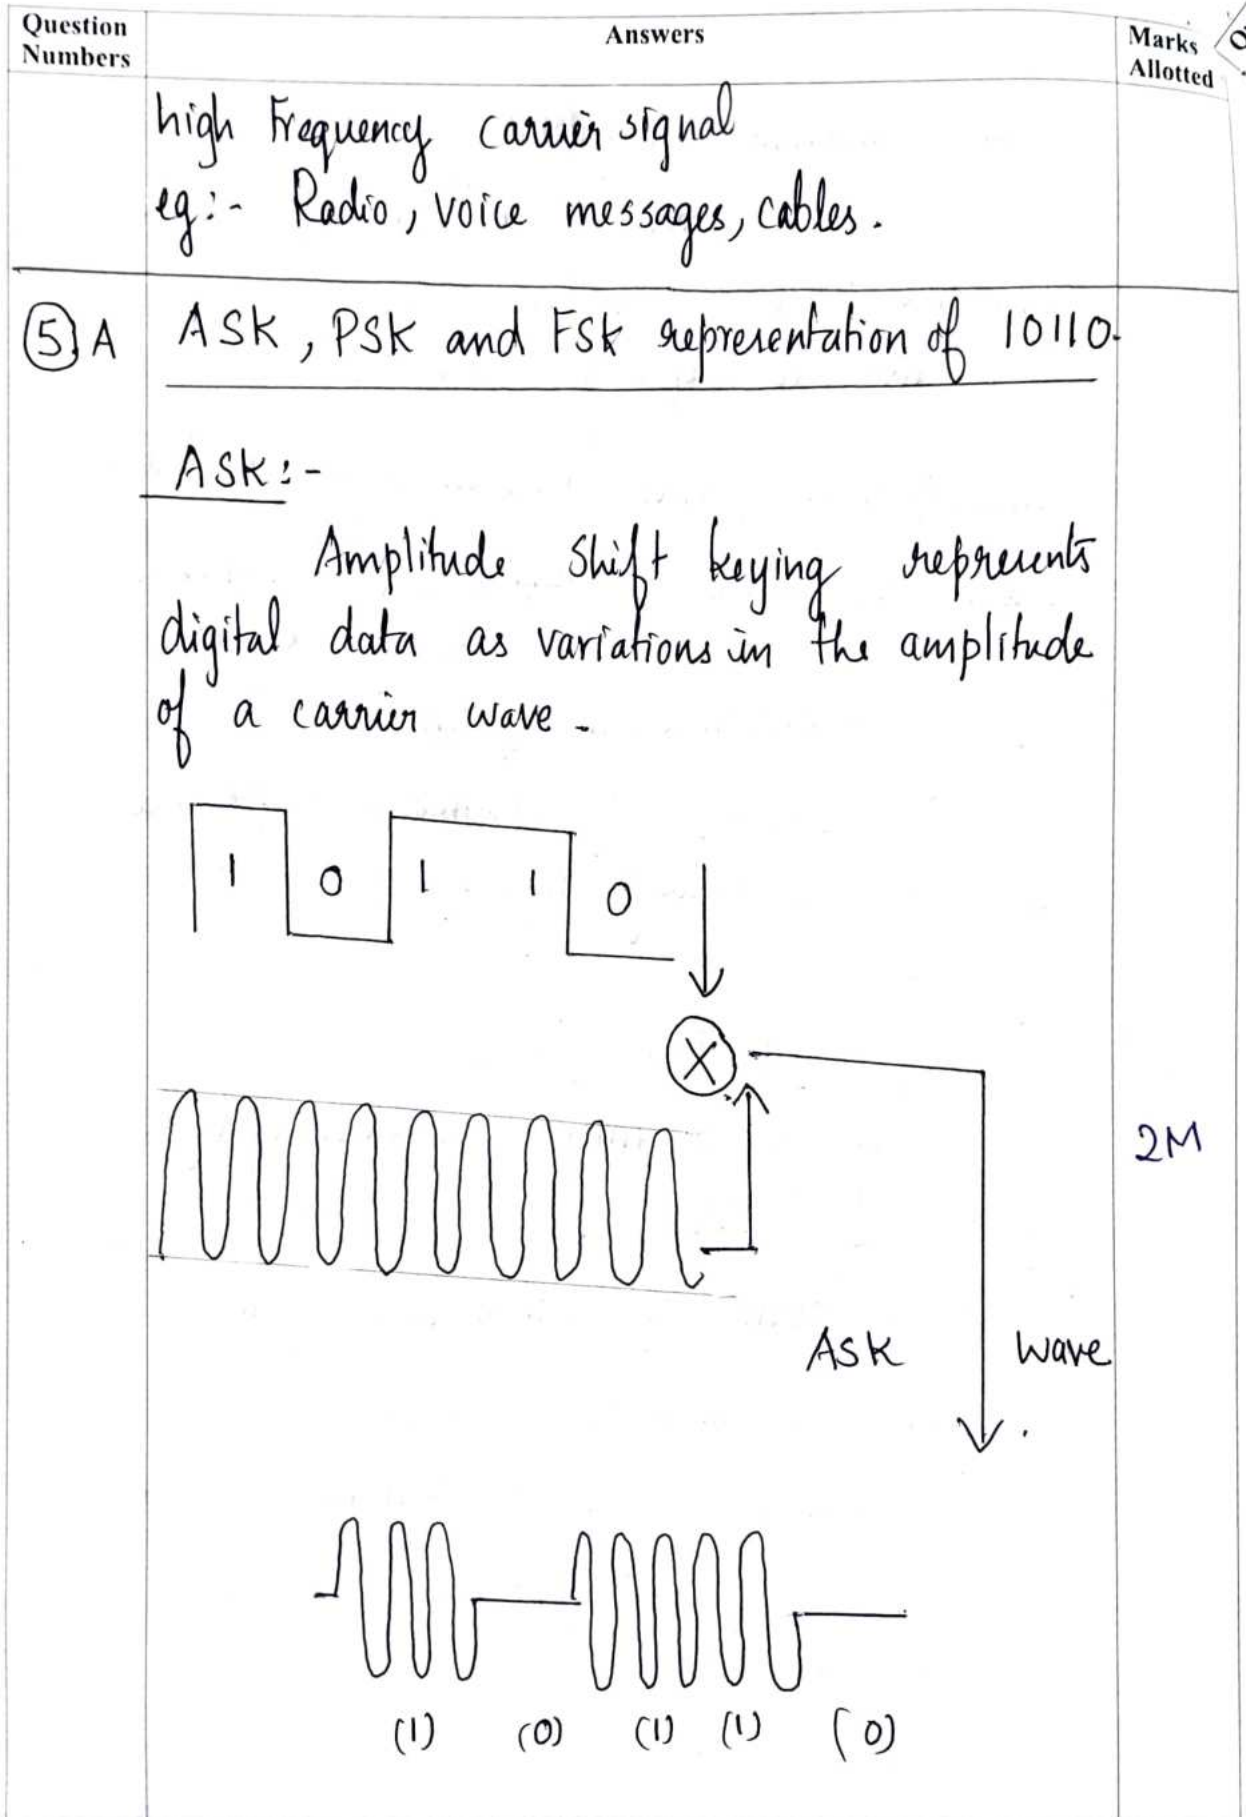 Question Numbers
Answers
Marks Allotted
high frequency carrier signal
eg:- Radio, voice messages, cables.
5 A
ASK, PSK and FSK representation of 10110.
ASK:-
Amplitude Shift keying represents
digital data as variations in the amplitude
of a carrier wave.
1 0 1 1 0
X
2M
ASK wave
(1) (0) (1) (1) (0)